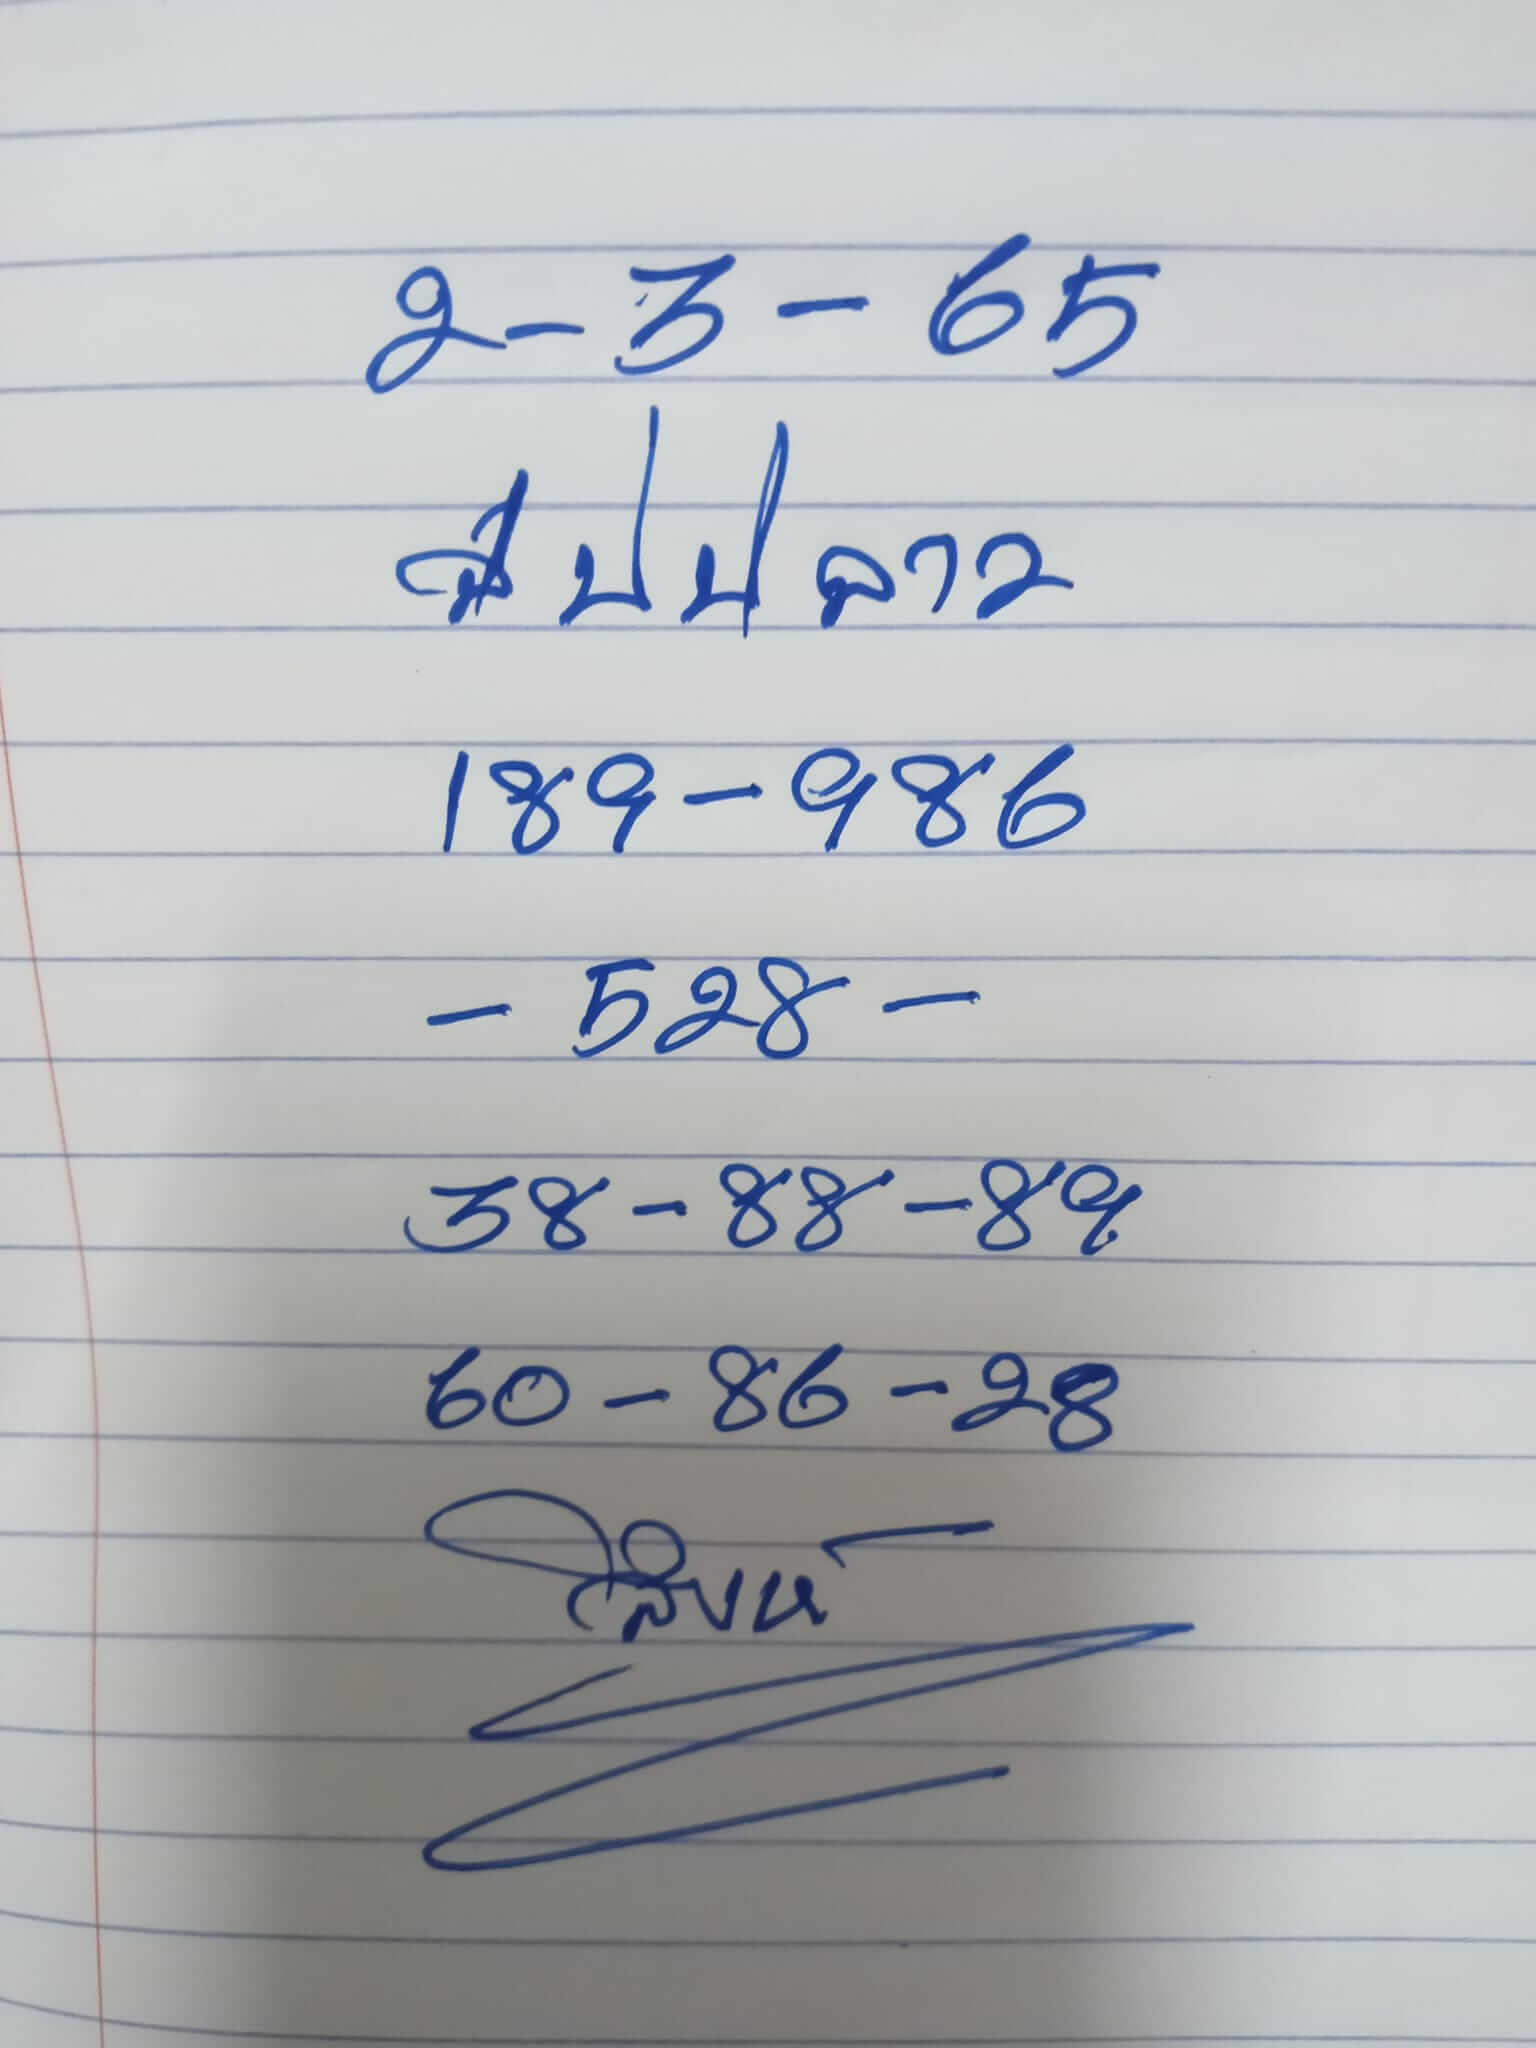 2-3-65
สปปลาว
189-986
-528-
38-88-89
60-86-28
สิงห์